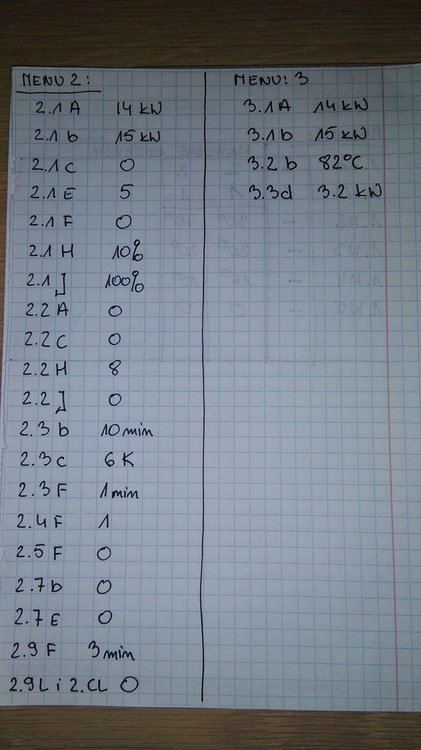 MENU 2:
2.1 A 14 kW
2.1 b 15 kW
2.1 C 0
2.1 E 5
2.1 F 0
2.1 H 10%
2.1 J 100%
2.2 A 0
2.2 C 0
2.2 H 8
2.2 J 0
2.3 b 10 min
2.3 C 6 K
2.3 F 1 min
2.4 F 1
2.5 F 0
2.7 b 0
2.7 E 0
2.9 F 3 min
2.9 L i 2.CL 0
MENU: 3
3.1 A 14 kW
3.1 b 15 kW
3.2 b 82°C
3.3d 3.2 kW